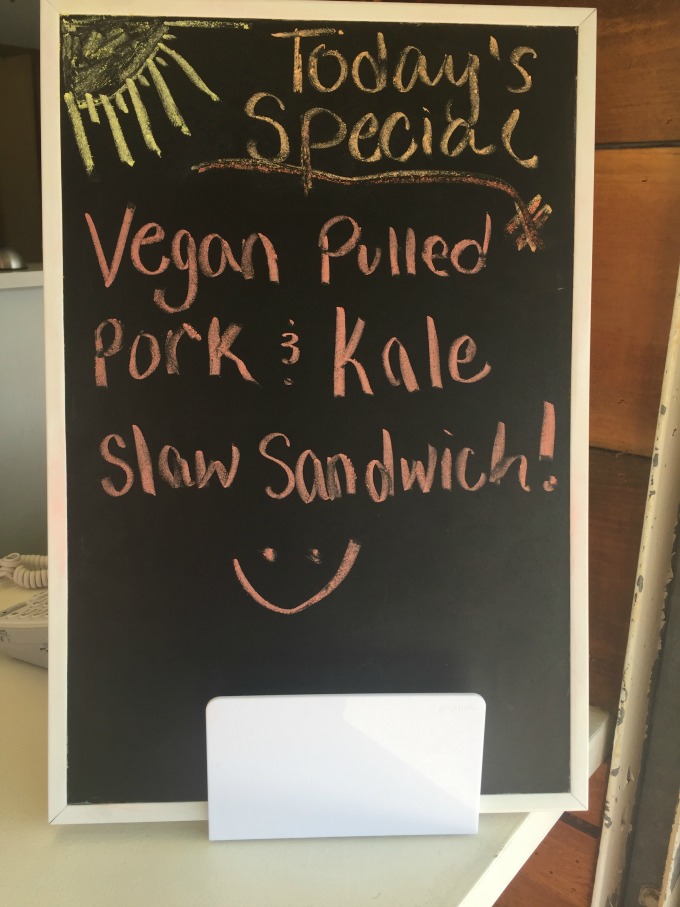 Today's
Special
Vegan Pulled
Pork & Kale
Slaw Sandwich!